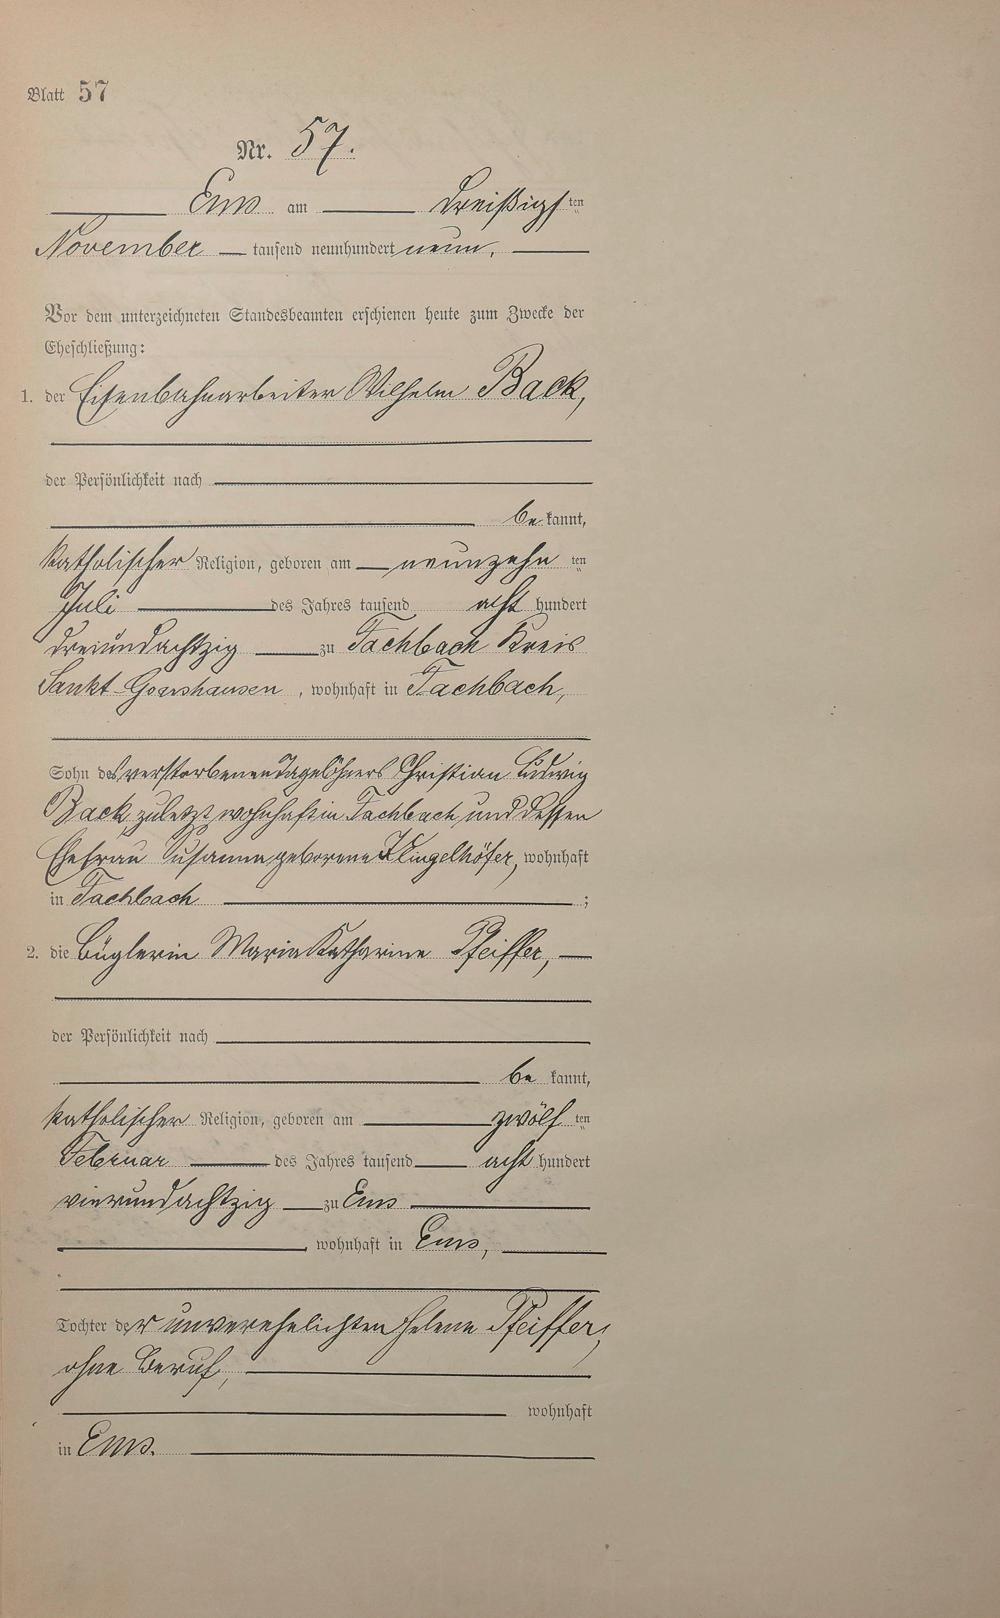 Blatt 57
Nr. 57.
Ems am Dreißigsten
November tausend neunhundert neun.
Vor dem unterzeichneten Standesbeamten erschienen heute zum Zwecke der
Eheschließung:
1. der Eisenbahnarbeiter Wilhelm Back,
der Persönlichkeit nach
be kannt,
katholischer Religion, geboren am neunzehn ten
Juli des Jahres tausend acht hundert
dreiundachtzig zu Fachbach Kreis
Sankt Goarshausen, wohnhaft in Fachbach,
Sohn des verstorbenen Tagelöhners Christian Ludwig
Back, zuletzt wohnhaft in Fachbach und dessen
Ehefrau Susanna geborene Klingelhöfer, wohnhaft
in Fachbach ;
2. die Büglerin Maria Katharine Pfeiffer,
der Persönlichkeit nach
be kannt,
katholischer Religion, geboren am zwölf ten
Februar des Jahres tausend acht hundert
vierundachtzig zu Ems
, wohnhaft in Ems,
Tochter der unverehelichten Helene Pfeiffer,
ohne Beruf,
wohnhaft
in Ems.